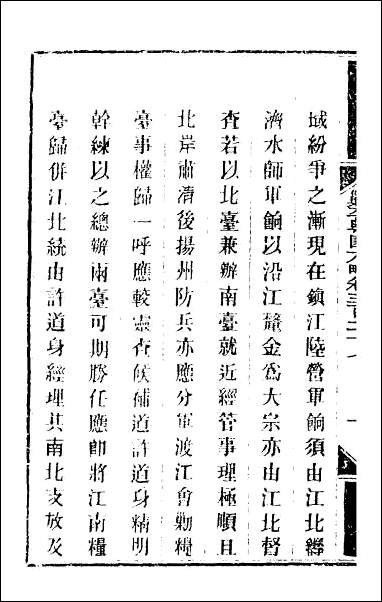 域紛爭之漸現在鎮江陸營軍餉須由江北聯
濟水師軍餉以沿江釐金爲大宗亦由江北督
查若以北臺兼辦南臺就近經管事理極順且
北岸肅清後揚州防兵亦應分軍渡江會勦糧
臺事權歸一呼應較靈查候補道許道身精明
幹練以之總辦兩臺可期勝任應卽將江南糧
臺歸併江北統由許道身經理其南北支放及